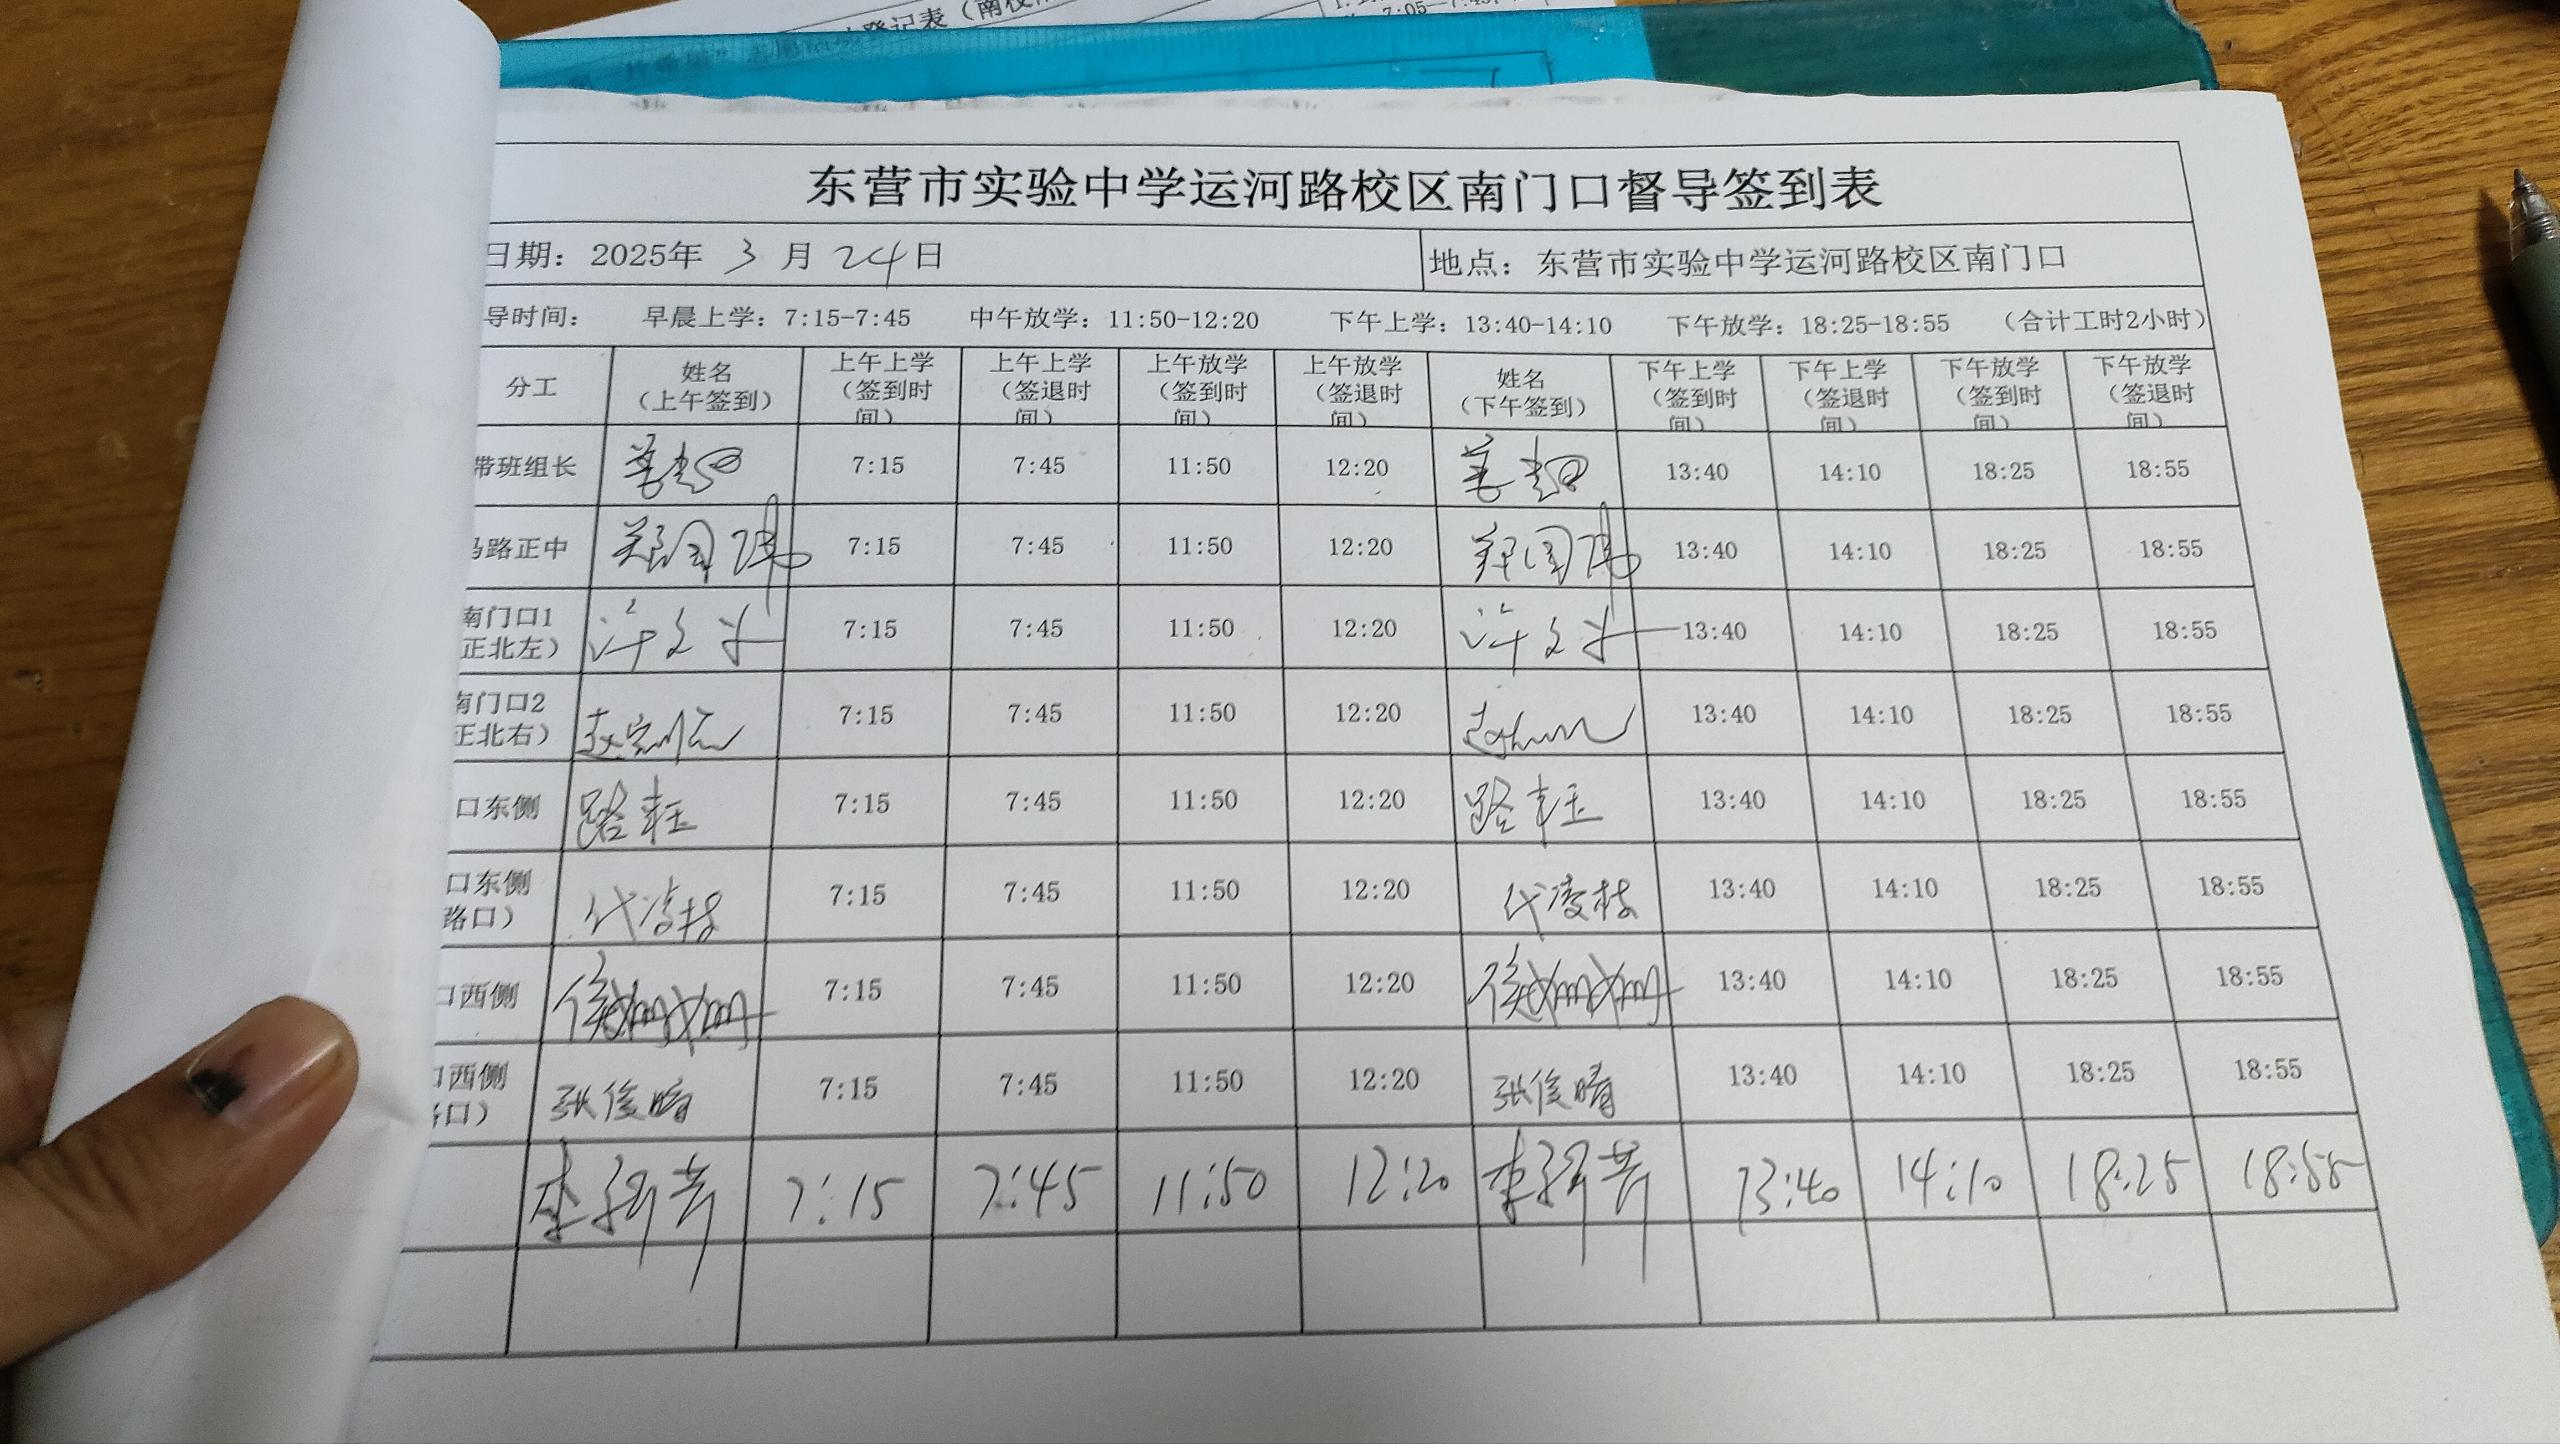 登记表（南校
7:05-7:45
东营市实验中学运河路校区南门口督导签到表
日期：2025年 3 月 24 日 地点：东营市实验中学运河路校区南门口
导时间： 早晨上学：7:15-7:45 中午放学：11:50-12:20 下午上学：13:40-14:10 下午放学：18:25-18:55 （合计工时2小时）
分工 姓名（上午签到） 上午上学（签到时间） 上午上学（签退时间） 上午放学（签到时间） 上午放学（签退时间） 姓名（下午签到） 下午上学（签到时间） 下午上学（签退时间） 下午放学（签到时间） 下午放学（签退时间）
带班组长 7:15 7:45 11:50 12:20 13:40 14:10 18:25 18:55
马路正中 郑国 7:15 7:45 11:50 12:20 郑国 13:40 14:10 18:25 18:55
南门口1 正北左） 许文 7:15 7:45 11:50 12:20 许文 13:40 14:10 18:25 18:55
南门口2 正北右） 赵 7:15 7:45 11:50 12:20 赵 13:40 14:10 18:25 18:55
口东侧 路 7:15 7:45 11:50 12:20 路 13:40 14:10 18:25 18:55
口东侧 路口） 代凌 7:15 7:45 11:50 12:20 代凌 13:40 14:10 18:25 18:55
口西侧 侯姗姗 7:15 7:45 11:50 12:20 侯姗姗 13:40 14:10 18:25 18:55
口西侧 口） 张俊晴 7:15 7:45 11:50 12:20 张俊晴 13:40 14:10 18:25 18:55
李 7:15 7:45 11:50 12:20 李 13:40 14:10 18:25 18:55